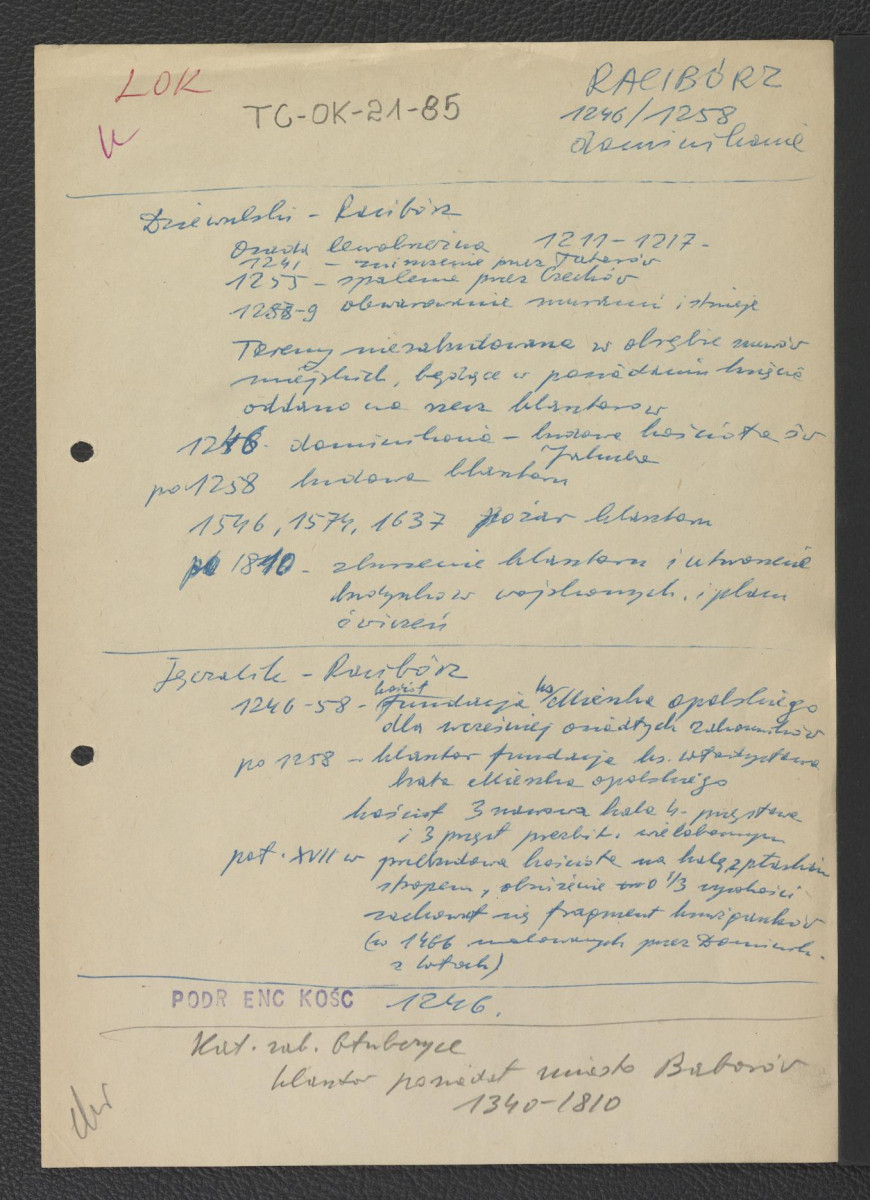 LOK
TC-OK-21-85
RACIBÓRZ
1246/1258
dominikanie
Dziewulski - Racibórz
Osada lewobrzeżna 1211-1217-
1241 - zniszczenie przez Tatarów
1255 - spalenie przez Czechów
obwarowanie murami istnieje
Tereny niezabudowane w obrębie murów
miejskich, będące w posiadaniu księcia
oddano na rzecz klasztorów
1246. dominikanie - budowa kościoła św
Jakuba
po 1258 budowa klasztoru
1546, 1574, 1637 pożar klasztoru
po 1810 - zburzenie klasztoru i utworzenie
budynków wojskowych. i placu
ćwiczeń
- Racibórz
kościół
1246-58 - fundacja ks. Mieszka opolskiego
dla wcześniej osiadłych zakonników
po 1258 - klasztor fundacja ks. Władysława
brata Mieszka opolskiego
kościół 3 nawowa hala 4-przęsłowa
i 3 przęsł prezbit. wielobocznym
poł. XVII w przebudowa kościoła na halę z płaskim
stropem, obniżenie o 1/3 wysokości
zachował się fragment krużganków
(w 1466 malowanych przez Dominik.
z Włoch)
PODR ENC KOŚC 1246.
Kat. zab. Głubczyce
klasztor posiadał miasto Baborów
1340-1810